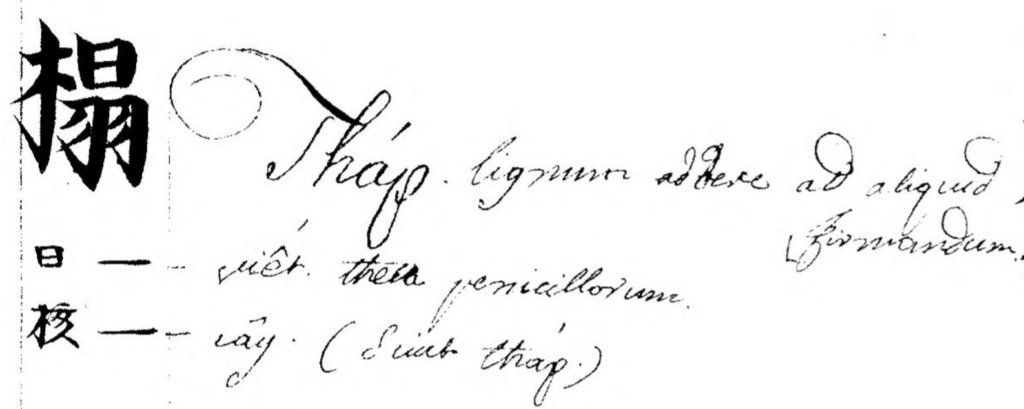 榻 Tháp. lignum addere ad aliquid
firmandum.
曰 — viết. theca penicillorum.
核 — cây. ( tháp.)